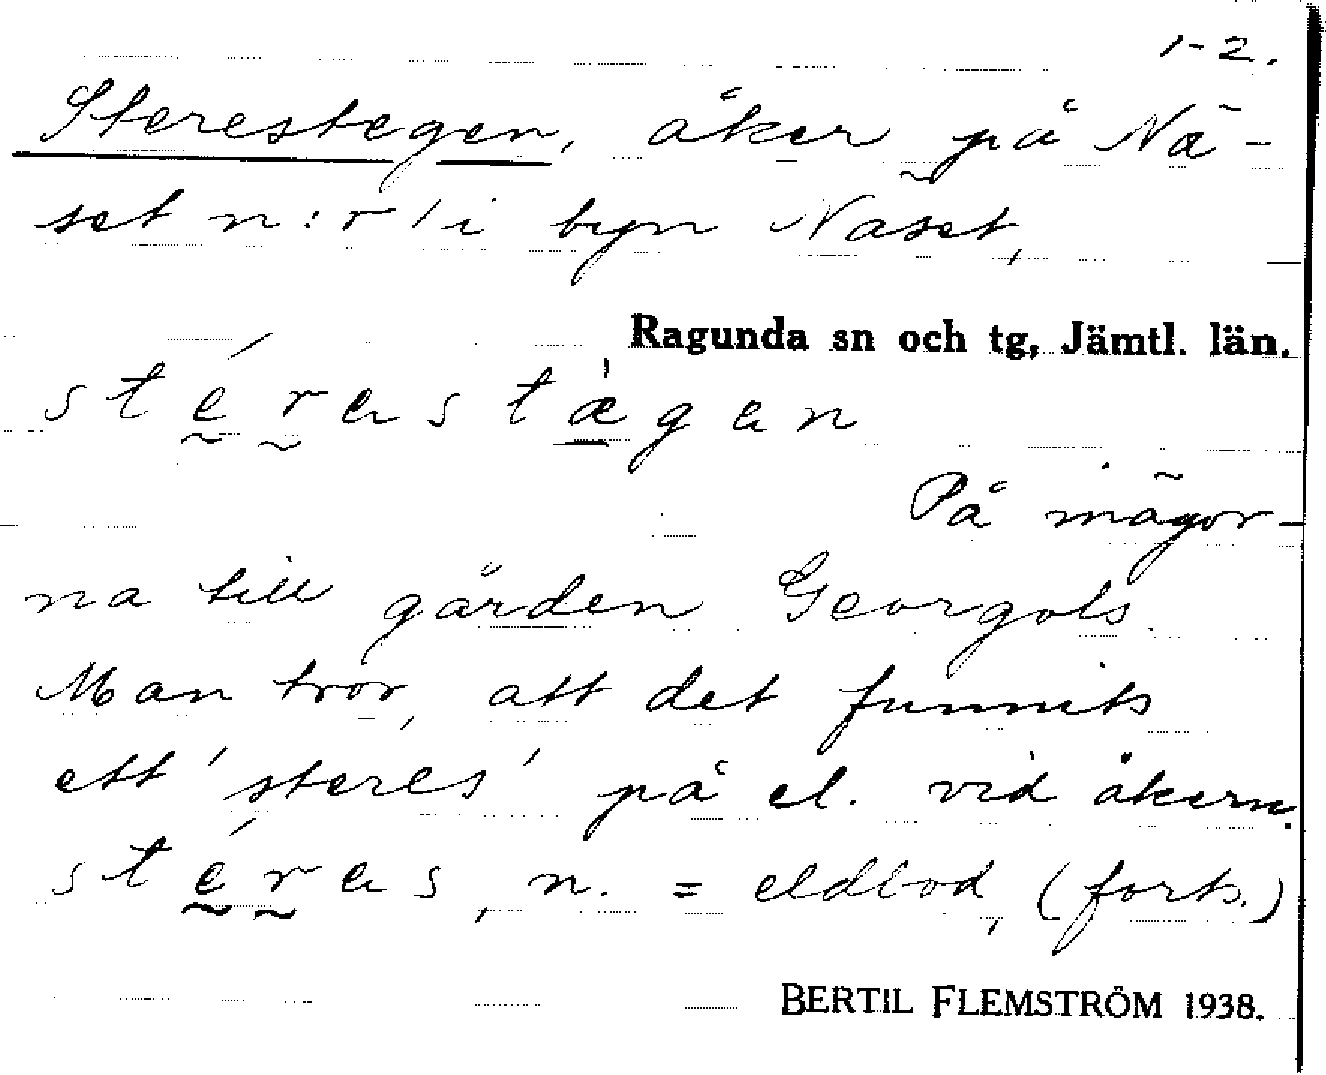 1-2.
Sterestegen, åker på Nä-
set n:r 1 i byn Näset,
Ragunda sn och tg, Jämtl. län.
stérestæ̀gen
På mägor-
na till gården Georgols.
Man tror, att det funnits
ett 'steres' på el. vid åkern.
stéres, n. = eldbod, (forts.)
BERTIL FLEMSTRÖM 1938.